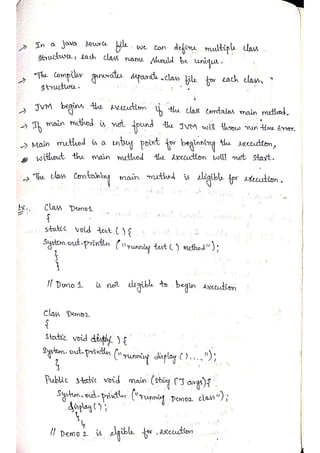 → In a java source file we can define multiple class
structure, each class name should be unique.
→ "The compiler generates separate .class file for each class,"
structure.
→ JVM begins the execution if the class contains main method.
→ If main method is not found the JVM will throw run time error.
→ Main method is a entry point for beginning the execution,
without the main method the execution will not start.
→ The class containing main method is eligible for execution.
Ex:. Class Demo1
{
static void test () {
System.out.println ("running test () method");
}
}
// Demo 1 is not elegible to begin execution
Class Demo2
{
static void display () {
System.out.println ("running display ()....");
}
Public static void main (String [] args) {
System.out.println ("running Demo2 class");
display ();
}
}
// Demo 2 is elgible for execution